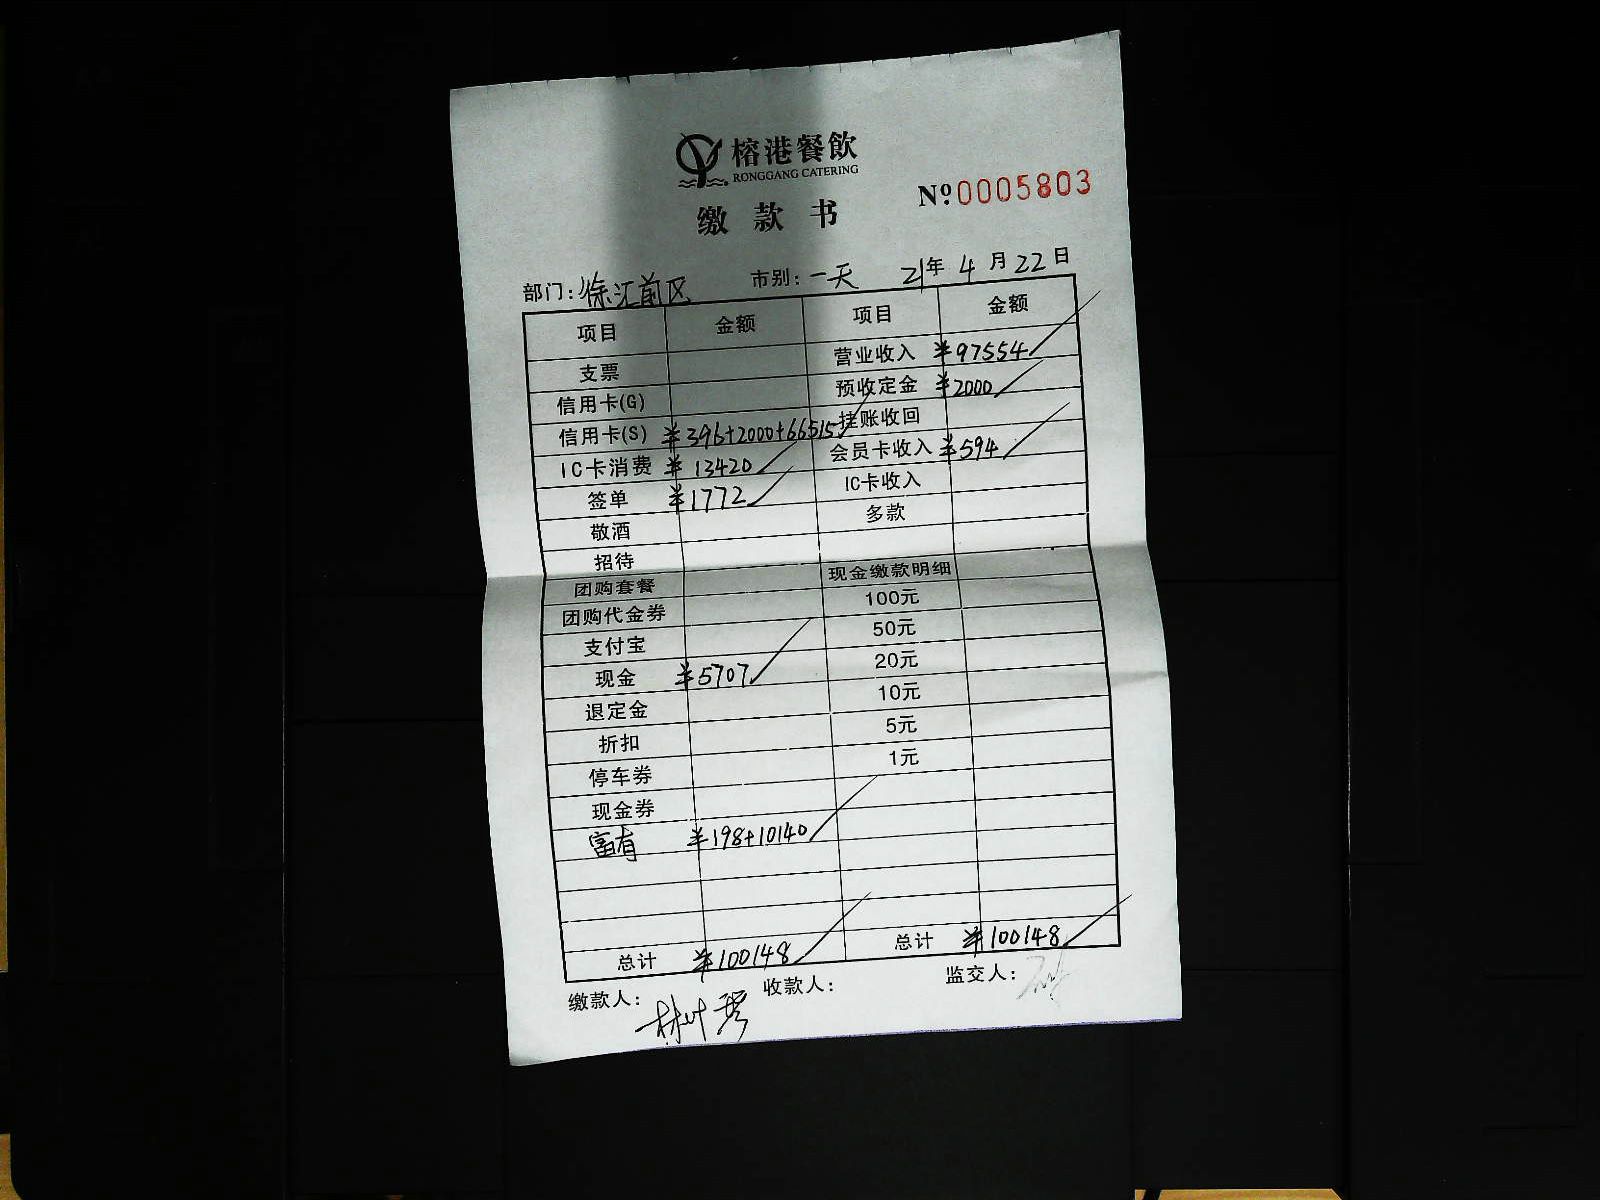 榕港餐飲
RONGGANG CATERING
缴款书
Nº 0005803
部门: 徐汇前区 市别: 一天 21年 4月 22日
项目 金额 项目 金额
支票 营业收入 ¥97554
信用卡(G) 预收定金 ¥2000
信用卡(S) ¥396+2000+66515 挂账收回
IC卡消费 ¥13420 会员卡收入 ¥594
签单 ¥1772 IC卡收入
敬酒 多款
招待
团购套餐 现金缴款明细
团购代金券 100元
支付宝 50元
现金 ¥5707 20元
退定金 10元
折扣 5元
停车券 1元
现金券
富有 ¥198+10140
总计 ¥100148 总计 ¥100148
缴款人: 收款人: 监交人: